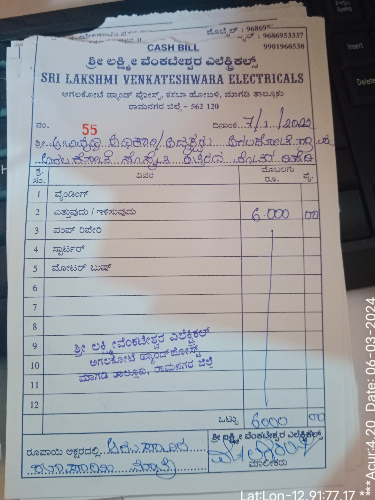 ಮೊಬೈಲ್ : 9686953337
9901960538
CASH BILL
ಶ್ರೀ ಲಕ್ಷ್ಮೀ ವೆಂಕಟೇಶ್ವರ ಎಲೆಕ್ಟ್ರಿಕಲ್ಸ್
SRI LAKSHMI VENKATESHWARA ELECTRICALS
ಅಗಲಕೋಟೆ ಹ್ಯಾಂಡ್ ಪೋಸ್ಟ್, ಕಸಬಾ ಹೋಬಳಿ, ಮಾಗಡಿ ತಾಲ್ಲೂಕು
ರಾಮನಗರ ಜಿಲ್ಲೆ - 562 120
ನಂ. 55 ದಿನಾಂಕ 7/1/2022
ಶ್ರೀ
ಕ್ರ. ಸಂ. ವಿವರ ಮೊಬಲಗು ರೂ. ಪೈ.
1 ವೈಂಡಿಂಗ್
2 ಎತ್ತುವುದು / ಇಳಿಸುವುದು 6.000 00
3 ಪಂಪ್ ರಿಪೇರಿ
4 ಸ್ಟಾರ್ಟರ್
5 ಮೋಟರ್ ಬುಷ್
6
7
8
9
10
11
12
ಶ್ರೀ ಲಕ್ಷ್ಮೀವೆಂಕಟೇಶ್ವರ ಎಲೆಕ್ಟ್ರಿಕಲ್
ಅಗಲಕೋಟೆ ಹ್ಯಾಂಡ್‌ಪೋಸ್ಟ್
ಮಾಗಡಿ ತಾಲ್ಲೂಕು, ರಾಮನಗರ ಜಿಲ್ಲೆ
ಒಟ್ಟು 6000 00
ರೂಪಾಯಿ ಅಕ್ಷರದಲ್ಲಿ
ಶ್ರೀ ಲಕ್ಷ್ಮೀ ವೆಂಕಟೇಶ್ವರ ಎಲೆಕ್ಟ್ರಿಕಲ್ಸ್
ಮಾಲೀಕರು
Insert
Delete
Lat:Lon-12.91:77.17 ***Acur:4.20 Date: 06-03-2024